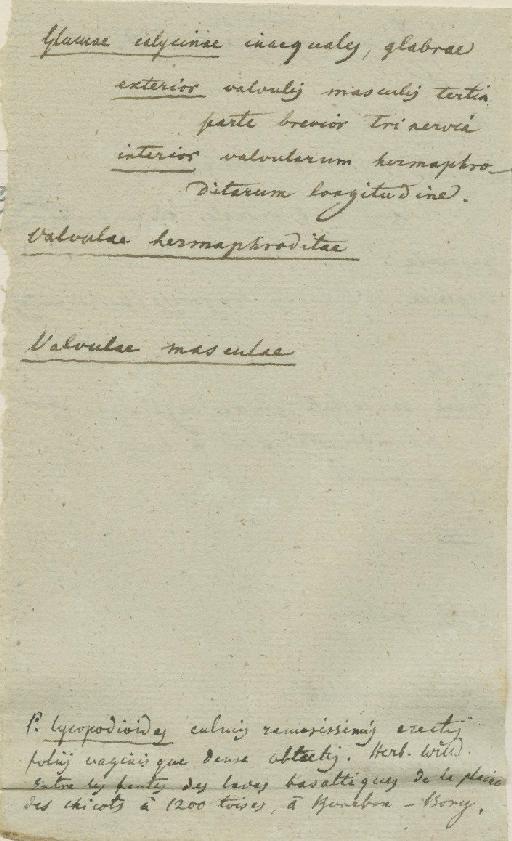 Glumae calycinae inaequales, glabrae
exterior valvulis masculis tertia
parte brevior trinervia
interior valvularum hermaphro-
ditarum longitudine.
Valvulae hermaphroditae
Valvulae masculae
P. lycopodioides culmis ramosissimis erectis
foliis vaginisque dense obtectis. Herb. Willd.
Entre les fentes des laves basaltiques de la plaine
des chicots à 1200 toises, à Bourbon – Bory.